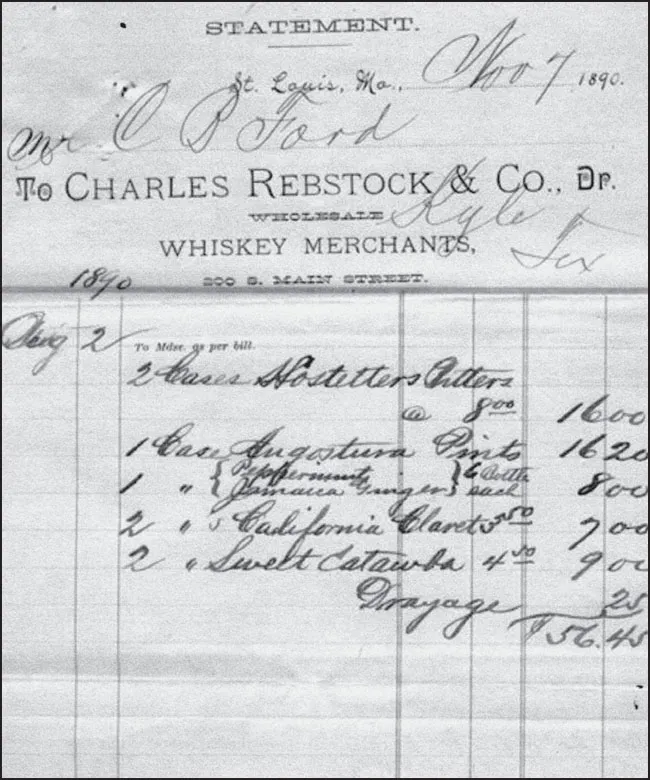 STATEMENT.
St. Louis, Mo., Nov 7 1890.
Mr C B Ford
To CHARLES REBSTOCK & Co., Dr.
WHOLESALE Kyle
WHISKEY MERCHANTS, Tex
1890 200 S. MAIN STREET.
Aug 2 To Mdse. as per bill.
2 Cases Hostetters Bitters
@ 8 00 16 00
1 Case Angostura Pints 16 20
1 " { Peppermint } 6 Bottle 8 00
Jamaica Ginger each
2 " California Claret 3 50 7 00
2 " Sweet Catawba 4 50 9 00
Drayage 25
$ 56.45